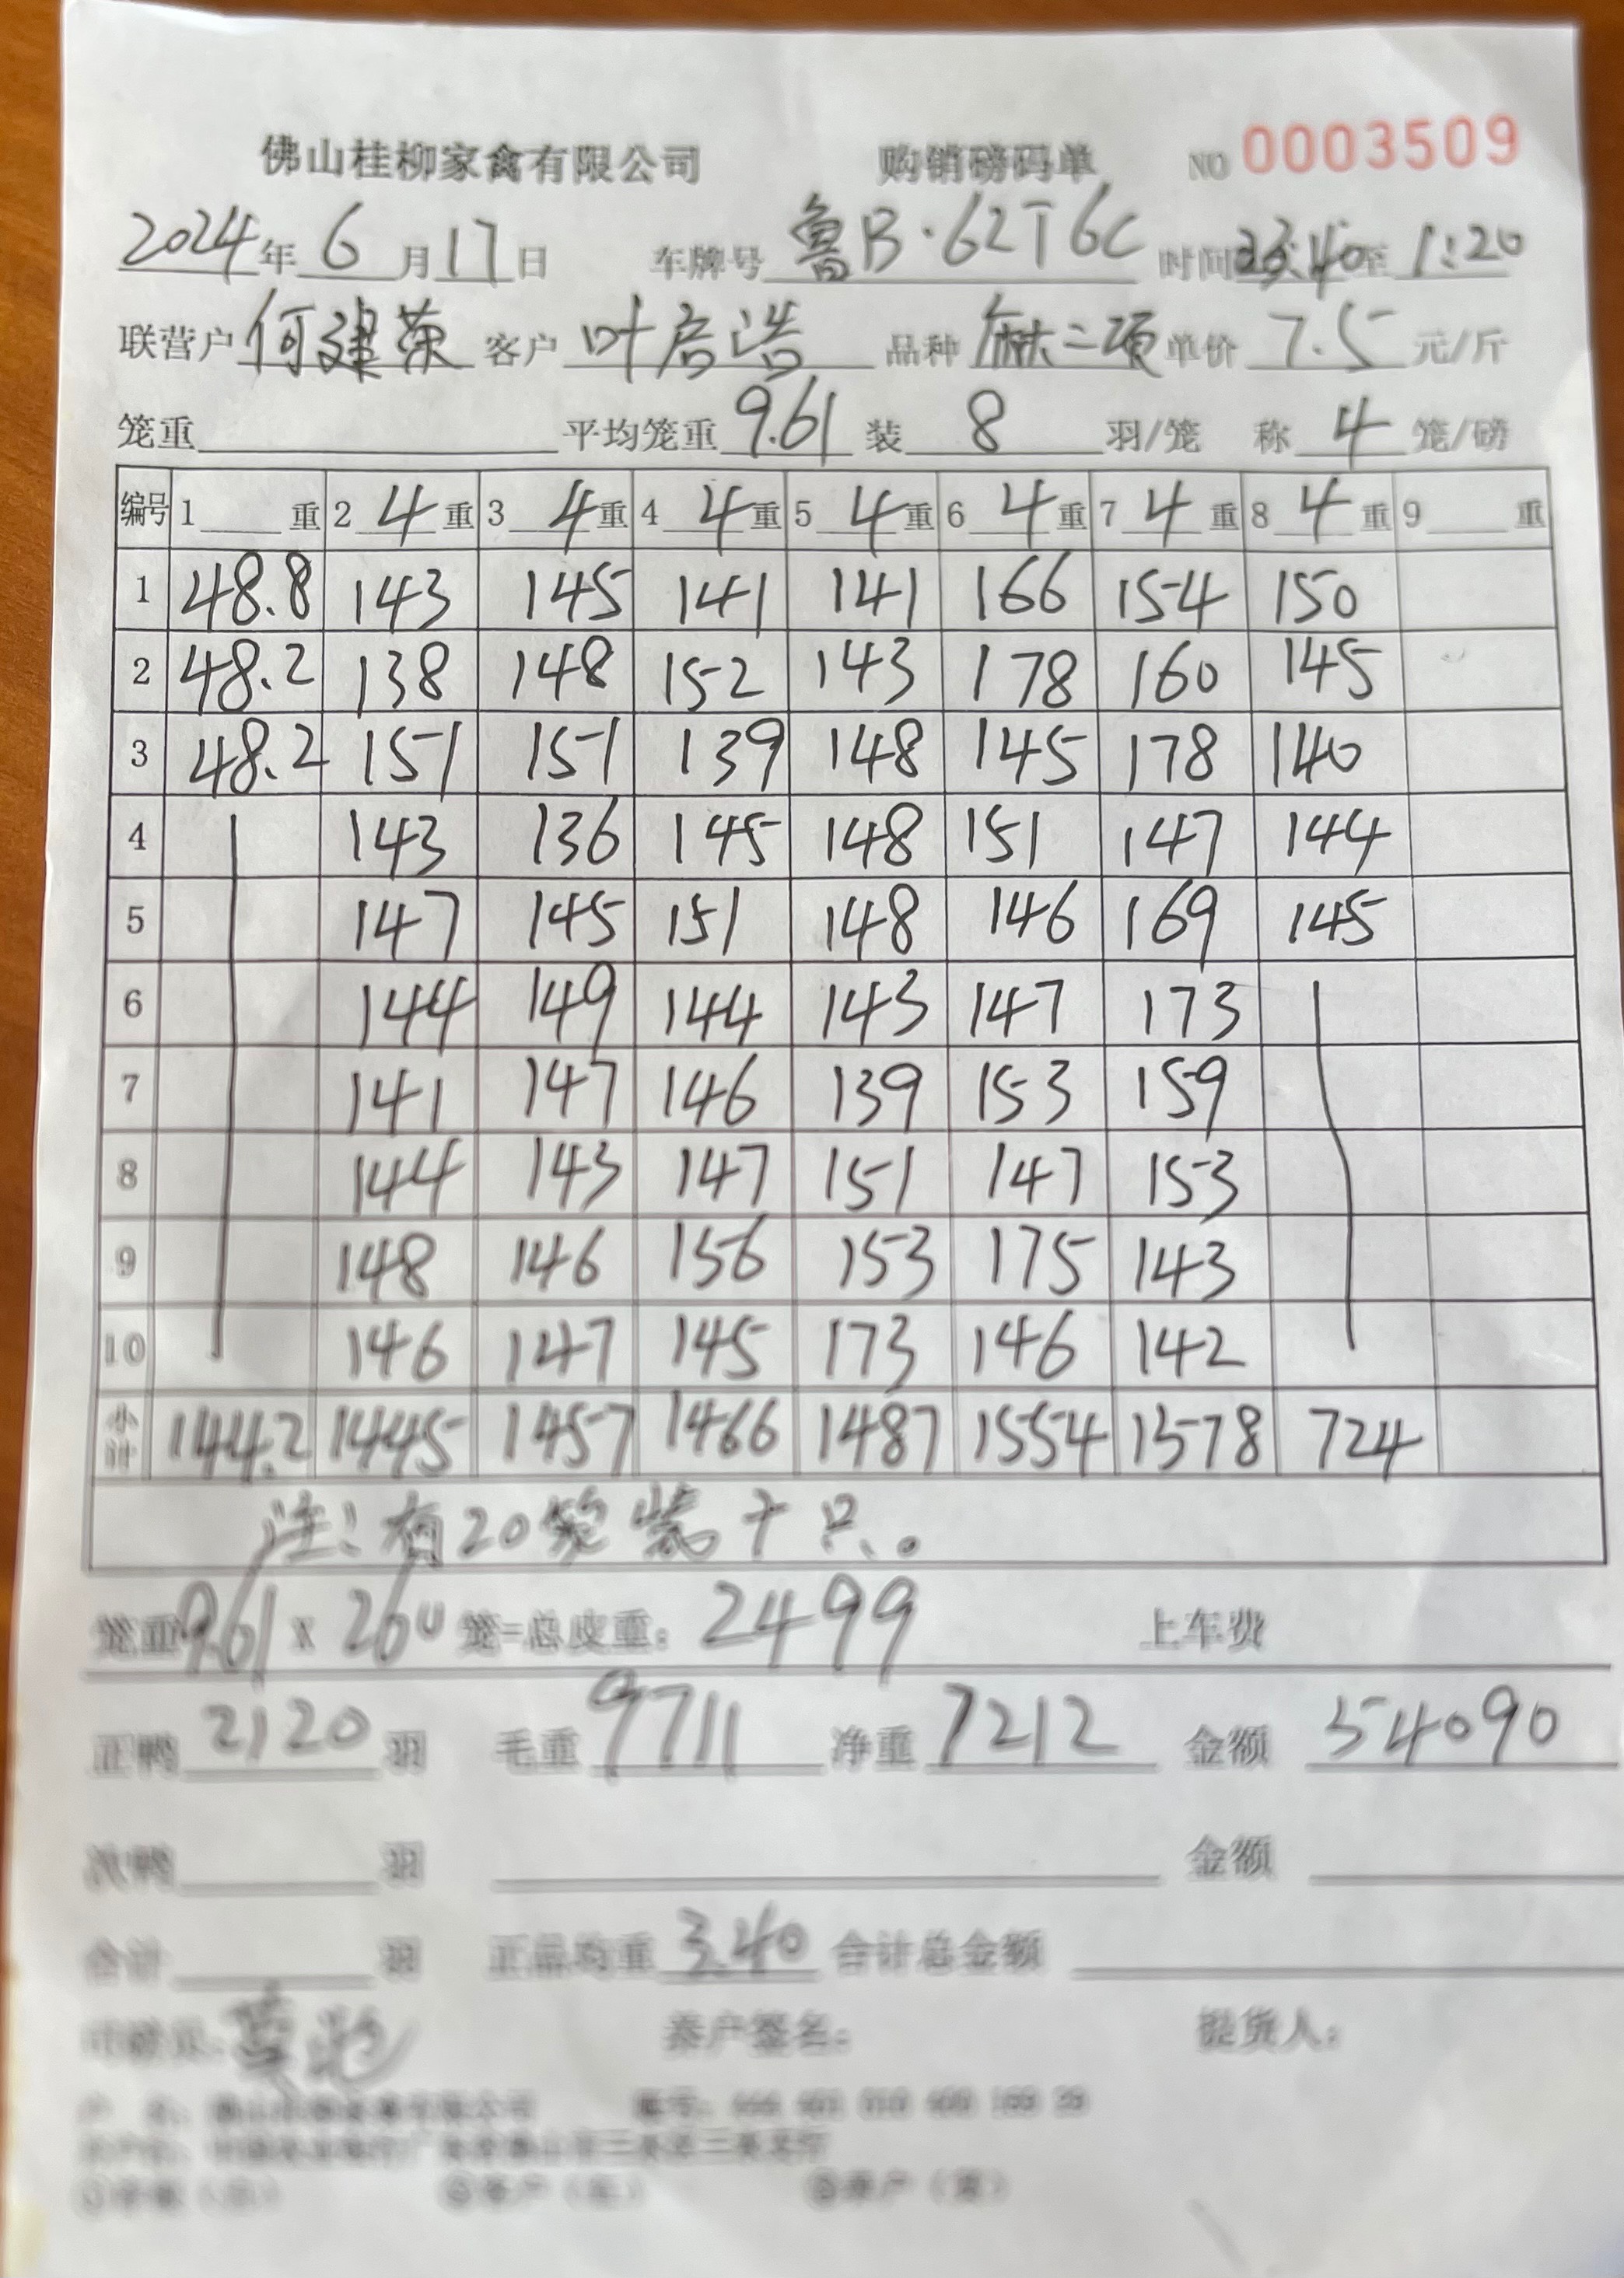 佛山桂柳家禽有限公司 购销磅码单 NO 0003509
2024年 6 月 17 日 车牌号 鲁B·62T6C 时间 23:40 至 1:20
联营户 何建荣 客户 叶启浩 品种 麻二项 单价 7.5 元/斤
笼重 平均笼重 9.61 装 8 羽/笼 称 4 笼/磅
编号 1 重 2 4 重 3 4 重 4 4 重 5 4 重 6 4 重 7 4 重 8 4 重 9 重
1 48.8 143 145 141 141 166 154 150
2 48.2 138 148 152 143 178 160 145
3 48.2 151 151 139 148 145 178 140
4 143 136 145 148 151 147 144
5 147 145 151 148 146 169 145
6 144 149 144 143 147 173
7 141 147 146 139 153 159
8 144 143 147 151 147 153
9 148 146 156 153 175 143
10 146 147 145 173 146 142
小计 144.2 1445 1457 1466 1487 1554 1578 724
注:有20笼装十只。
笼重 9.61 x 260 笼=总皮重: 2499 上车费
正鸭 2120 羽 毛重 9711 净重 7212 金额 54090
次鸭 羽 金额
合计 羽 正品均重 3.40 合计总金额
养户签名: 提货人: